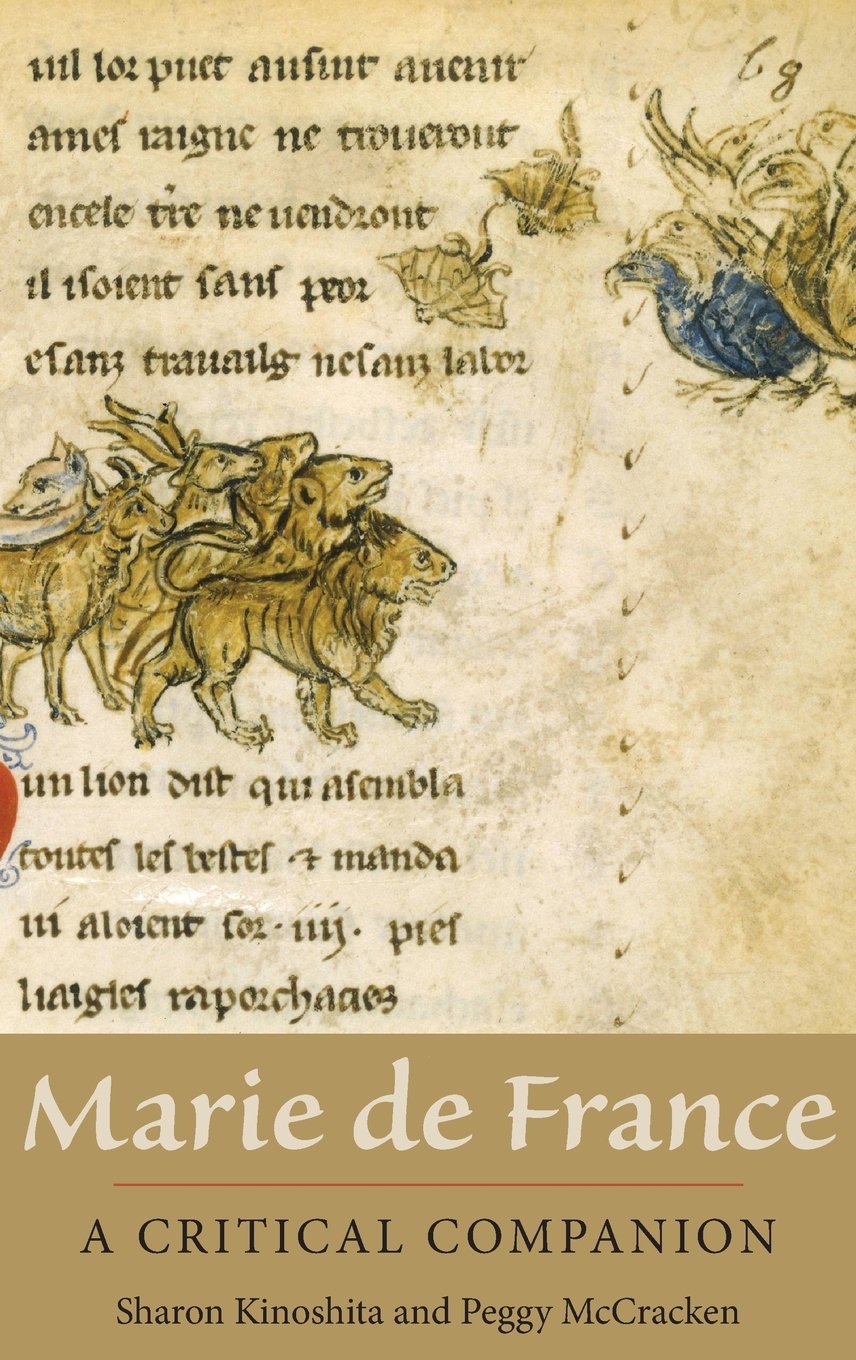 uil lor puet ausint auenir
ames raigne ne troueront
encele tr̄e ne uendront
il isoient sans peor
esanz trauailg nesanz labor
bg
un lion dist qui asembla
toutes les bestes ⁊ manda
ui aloient sor · iiij · pies
Marie de France
A CRITICAL COMPANION
Sharon Kinoshita and Peggy McCracken